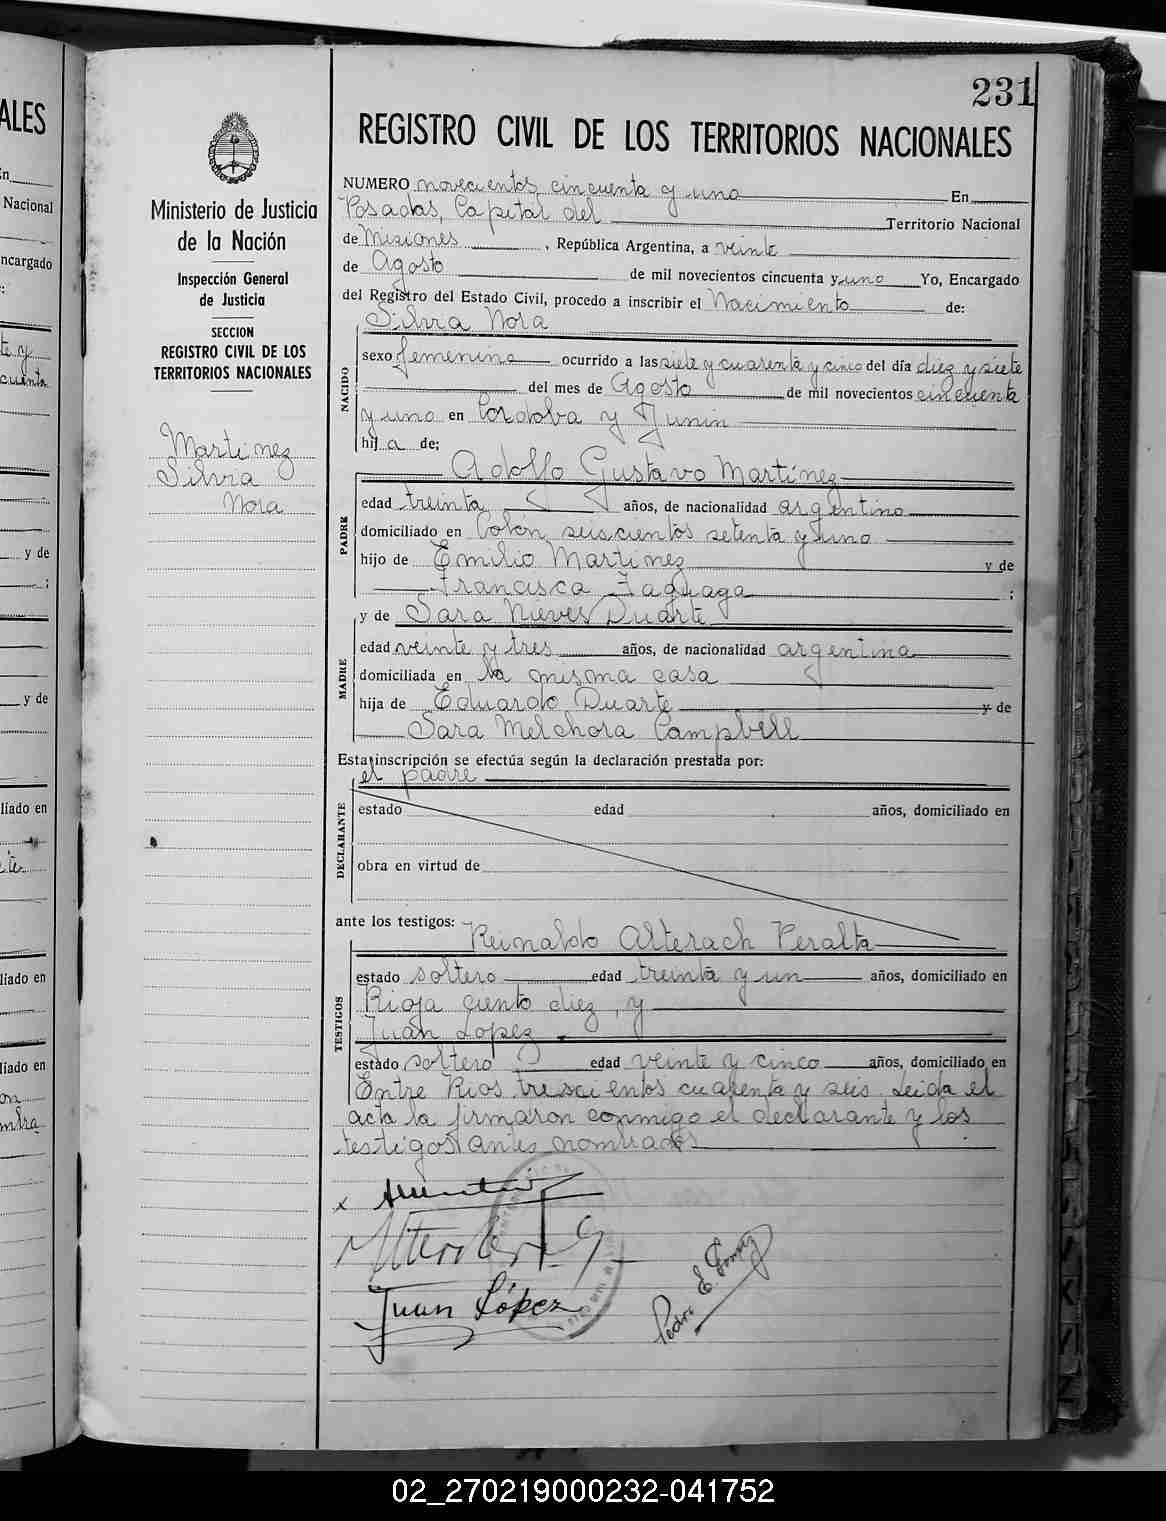 231
REGISTRO CIVIL DE LOS TERRITORIOS NACIONALES
Ministerio de Justicia
de la Nación
Inspección General
de Justicia
SECCION
REGISTRO CIVIL DE LOS
TERRITORIOS NACIONALES
Martinez
Silvia
Nora
NUMERO novecientos cincuenta y uno En
Posadas, Capital del Territorio Nacional
de Misiones, República Argentina, a veinte
de Agosto de mil novecientos cincuenta y uno Yo, Encargado
del Registro del Estado Civil, procedo a inscribir el Nacimiento de:
Silvia Nora
NACIDO
sexo femenino ocurrido a las siete y cuarenta y cinco del día diez y siete
del mes de Agosto de mil novecientos cincuenta
y uno en Córdoba y Junin
hija de;
Adolfo Gustavo Martínez
PADRE
edad treinta años, de nacionalidad argentino
domiciliado en Colón seiscientos setenta y uno
hijo de Emilio Martinez y de
Francisca ;
y de Sara Nieves Duarte
MADRE
edad veinte y tres años, de nacionalidad argentina
domiciliada en la misma casa
hija de Eduardo Duarte y de
Sara Melchora Campbell
Esta inscripción se efectúa según la declaración prestada por:
el padre
DECLARANTE
estado edad años, domiciliado en
obra en virtud de
ante los testigos: Reinaldo Alterach Peralta
TESTIGOS
estado soltero edad treinta y un años, domiciliado en
Rioja ciento diez, y
Juan Lopez
estado soltero edad veinte y cinco años, domiciliado en
Entre Rios trescientos cuarenta y seis. Leida el
acta la firmaron conmigo el declarante y los
testigos antes nombrados
Juan López
Pedro E.
ALES
En
Nacional
ncargado
y de
y de
liado en
liado en
liado en
02_270219000232-041752